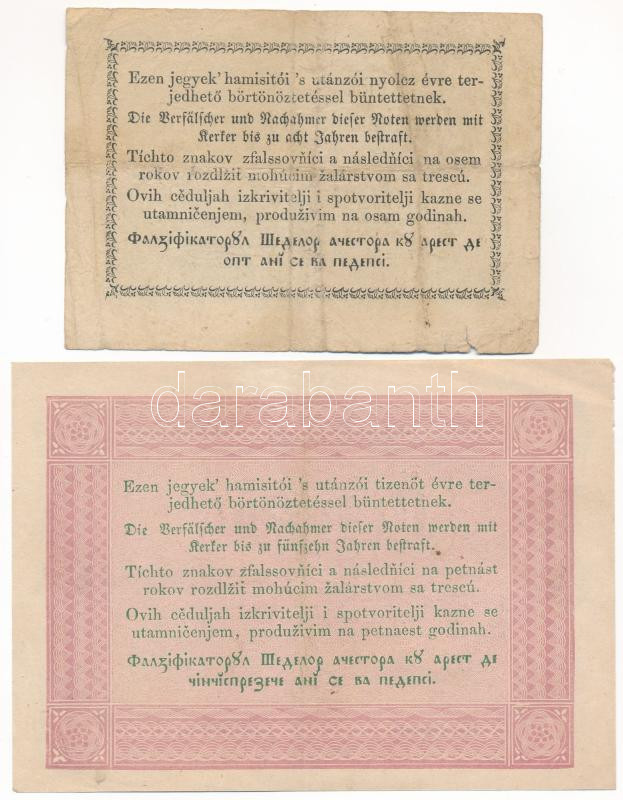 Ezen jegyek' hamisitói 's utánzói nyolcz évre ter-
jedhető börtönöztetéssel büntettetnek.
Die Verfälscher und Nachahmer dieser Noten werden mit
Kerker bis zu acht Jahren bestraft.
Tíchto znakov zfalssovňíci a následňíci na osem
rokov rozdlžiť mohúcim žalárstvom sa trescú.
Ovih cěduljah izkrivitelji i spotvoritelji kazne se
utamničenjem, produživim na osam godinah.
Фалзіфікаторꙋл Шеделор ачестора кꙋ арест де
опт анĭ се ва педепсі.
darabanth
Ezen jegyek' hamisitói 's utánzói tizenöt évre ter-
jedhető börtönöztetéssel büntettetnek.
Die Verfälscher und Nachahmer dieser Noten werden mit
Kerker bis zu fünfzehn Jahren bestraft.
Tíchto znakov zfalssovňíci a následňíci na petnást
rokov rozdlžiť mohúcim žalárstvom sa trescú.
Ovih cěduljah izkrivitelji i spotvoritelji kazne se
utamničenjem, produživim na petnaest godinah.
Фалзіфікаторꙋл Шеделор ачестора кꙋ арест де
чінчĭспрезече анĭ се ва педепсі.